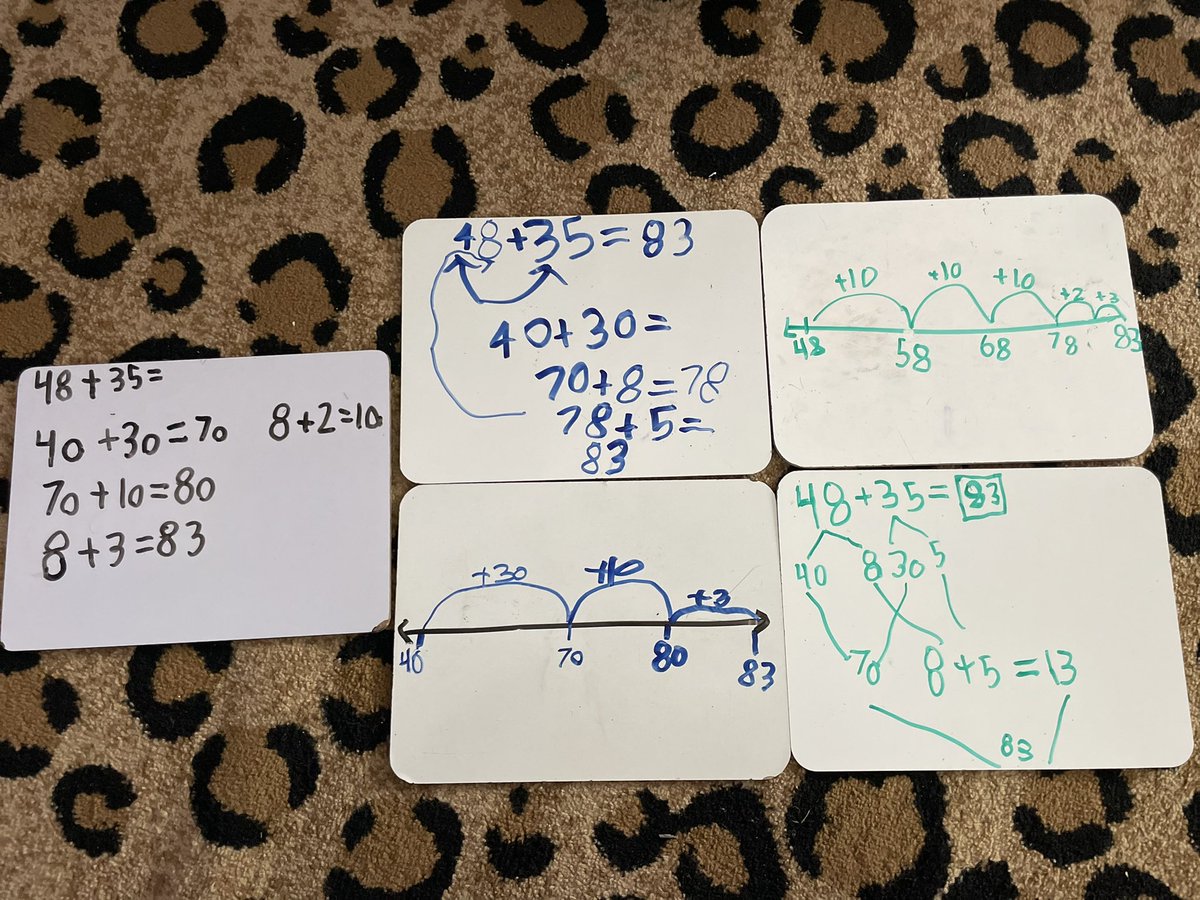 48 + 35 =
40 + 30 = 70 8 + 2 = 10
70 + 10 = 80
8 + 3 = 83
48 + 35 = 83
40 + 30 =
70 + 8 = 78
78 + 5 =
83
+30 +10 +3
40 70 80 83
+10 +10 +10 +2 +3
48 58 68 78 83
48 + 35 = 83
40 8 30 5
70 8 + 5 = 13
83